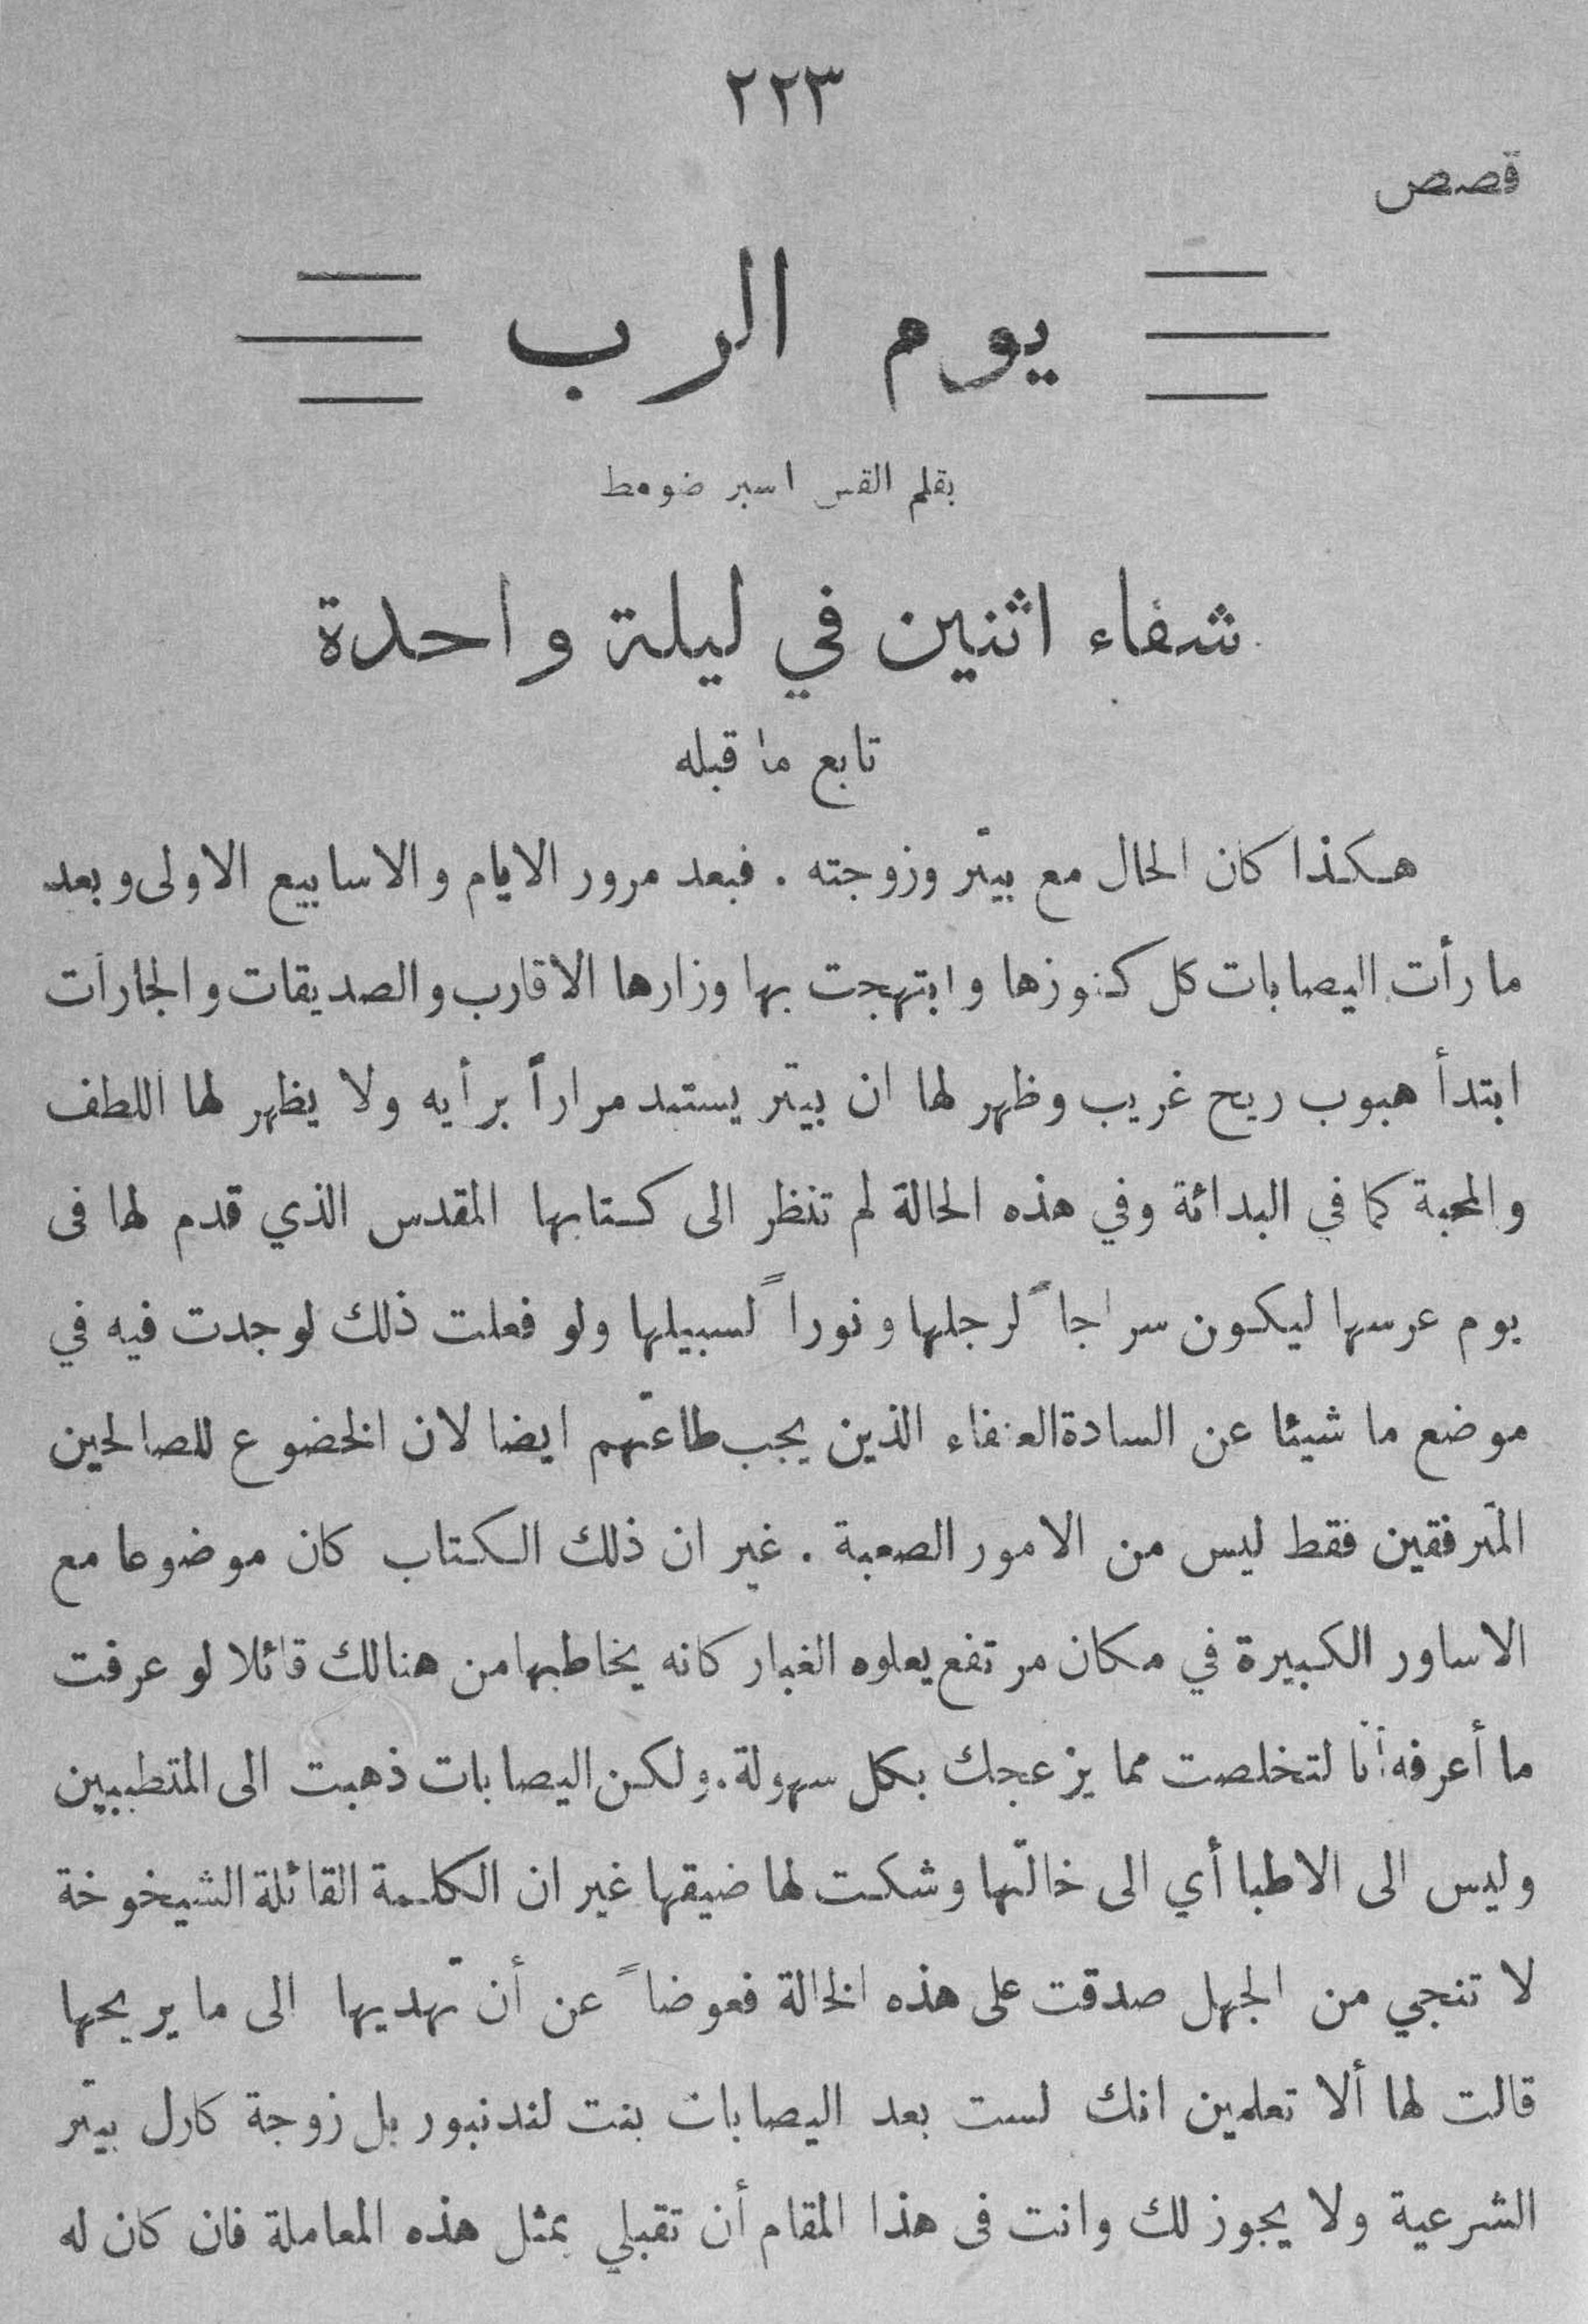 ٢٢٣
قصص
يوم الرب
بقلم القس اسبر ضومط
شفاء اثنين في ليلة واحدة
تابع ما قبله
هكذا كان الحال مع بيتر وزوجته . فبعد مرور الايام والاسابيع الاولى وبعد
ما رأت اليصابات كل كنوزها وابتهجت بها وزارها الاقارب والصديقات والجارات
ابتدأ هبوب ريح غريب وظهر لها ان بيتر يستبد مراراً برأيه ولا يظهر لها اللطف
والمحبة كما في البدائة وفي هذه الحالة لم تنظر الى كتابها المقدس الذي قدم لها فى
يوم عرسها ليكون سراجاً لرجلها ونوراً لسبيلها ولو فعلت ذلك لوجدت فيه في
موضع ما شيئا عن السادة العنفاء الذين يجب طاعتهم ايضا لان الخضوع للصالحين
المترفقين فقط ليس من الامور الصعبة . غير ان ذلك الكتاب كان موضوعا مع
الاساور الكبيرة في مكان مرتفع يعلوه الغبار كانه يخاطبها من هنالك قائلا لو عرفت
ما أعرفه أنا لتخلصت مما يزعجك بكل سهولة. ولكن اليصابات ذهبت الى المتطببين
وليس الى الاطبا أي الى خالتها وشكت لها ضيقها غير ان الكلمة القائلة الشيخوخة
لا تنجي من الجهل صدقت على هذه الخالة فعوضاً عن أن تهديها الى ما يريحها
قالت لها ألا تعلمين انك لست بعد اليصابات بنت لندنبور بل زوجة كارل بيتر
الشرعية ولا يجوز لك وانت فى هذا المقام أن تقبلي بمثل هذه المعاملة فان كان له